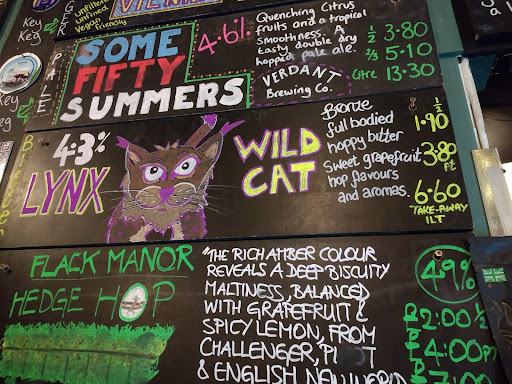 Unfiltered
unfined
Vegan
friendly
GER
Key
Key
Key
Keg
PALE
SOME
FIFTY
SUMMERS
4.6%
Quenching Citrus
fruits and a tropical
Smoothness. A
tasty double dry
hopped pale ale.
VERDANT
Brewing Co.
½ 3.80
⅔ 5.10
Litre 13.30
4.3%
LYNX
WILD
CAT
Bronze
full bodied
hoppy bitter
Sweet grapefruit
hop flavours
and aromas.
½
1.90
3.80
PT
6.60
TAKE-AWAY
1LT
FLACK MANOR
HEDGE HOP
"THE RICH AMBER COLOUR
REVEALS A DEEP BISCUITY
MALTINESS, BALANCED
WITH GRAPEFRUIT &
SPICY LEMON, FROM
CHALLENGER,
& ENGLISH NEW WORLD
49%
2.00 ½
4.00
7.00